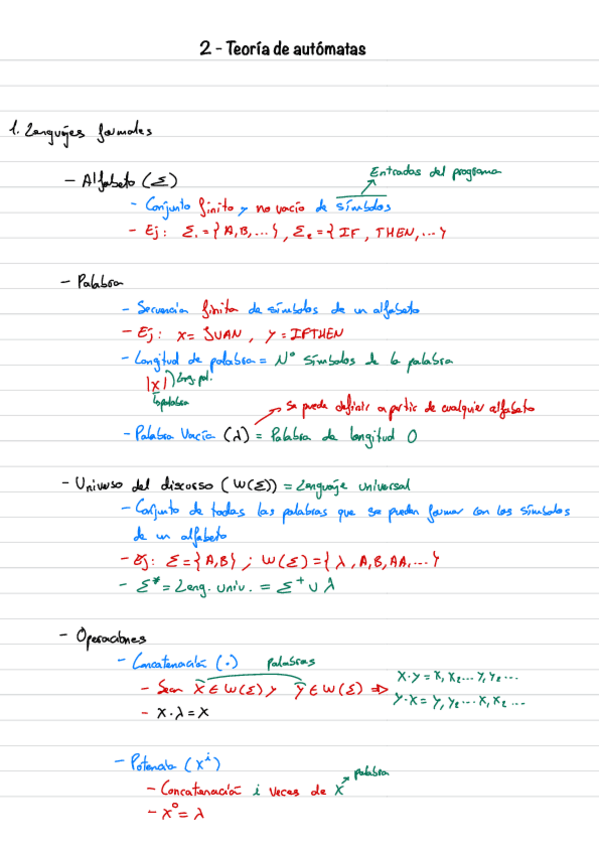 2 - Teoría de autómatas
1. Lenguajes formales
- Alfabeto (Σ)
Entradas del programa
- Conjunto finito y no vacío de símbolos
- Ej: Σ₁ = {A,B,...}, Σ₂ = {IF, THEN,...}
- Palabra
- Secuencia finita de símbolos de un alfabeto
- Ej: x = JUAN, y = IFTHEN
- Longitud de palabra = Nº símbolos de la palabra
|x| Long. pal.
↳ palabra
Se puede definir a partir de cualquier alfabeto
- Palabra Vacía (λ) = Palabra de longitud 0
- Universo del discurso (W(Σ)) = Lenguaje universal
- Conjunto de todas las palabras que se pueden formar con los símbolos
de un alfabeto
- Ej: Σ = {A,B} ; W(Σ) = {λ, A, B, AA,...}
- Σ* = Leng. univ. = Σ⁺ ∪ λ
- Operaciones
- Concatenación (·) palabras
- Sean x ∈ W(Σ) y y ∈ W(Σ) ⇒ x·y = x₁ x₂... y₁ y₂...
y·x = y₁ y₂... x₁ x₂...
- x·λ = x
- Potencia (xⁱ)
palabra
- Concatenación i veces de x
- x⁰ = λ